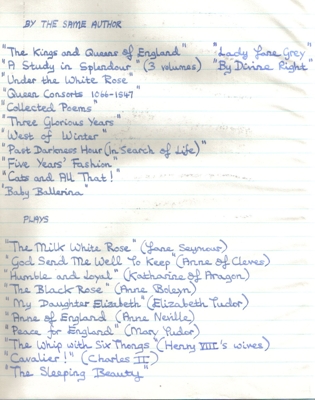 BY THE SAME AUTHOR
"The Kings and Queens of England" "Lady Jane Grey"
"A Study in Splendour" (3 volumes) "By Divine Right"
"Under the White Rose"
"Queen Consorts 1066-1547"
"Collected Poems"
"Three Glorious Years"
"West of Winter"
"Past Darkness Hour (In Search of Life)"
"Five Years' Fashion"
"Cats and All That!"
"Baby Ballerina"
PLAYS
"The Milk White Rose" (Jane Seymour)
"God Send Me Well To Keep" (Anne of Cleves)
"Humble and Loyal" (Katharine of Aragon)
"The Black Rose" (Anne Boleyn)
"My Daughter Elizabeth" (Elizabeth Tudor)
"Anne of England (Anne Neville)
"Peace for England" (Mary Tudor)
"The Whip with Six Thongs" (Henry VIII's wives)
"Cavalier!" (Charles II)
"The Sleeping Beauty"